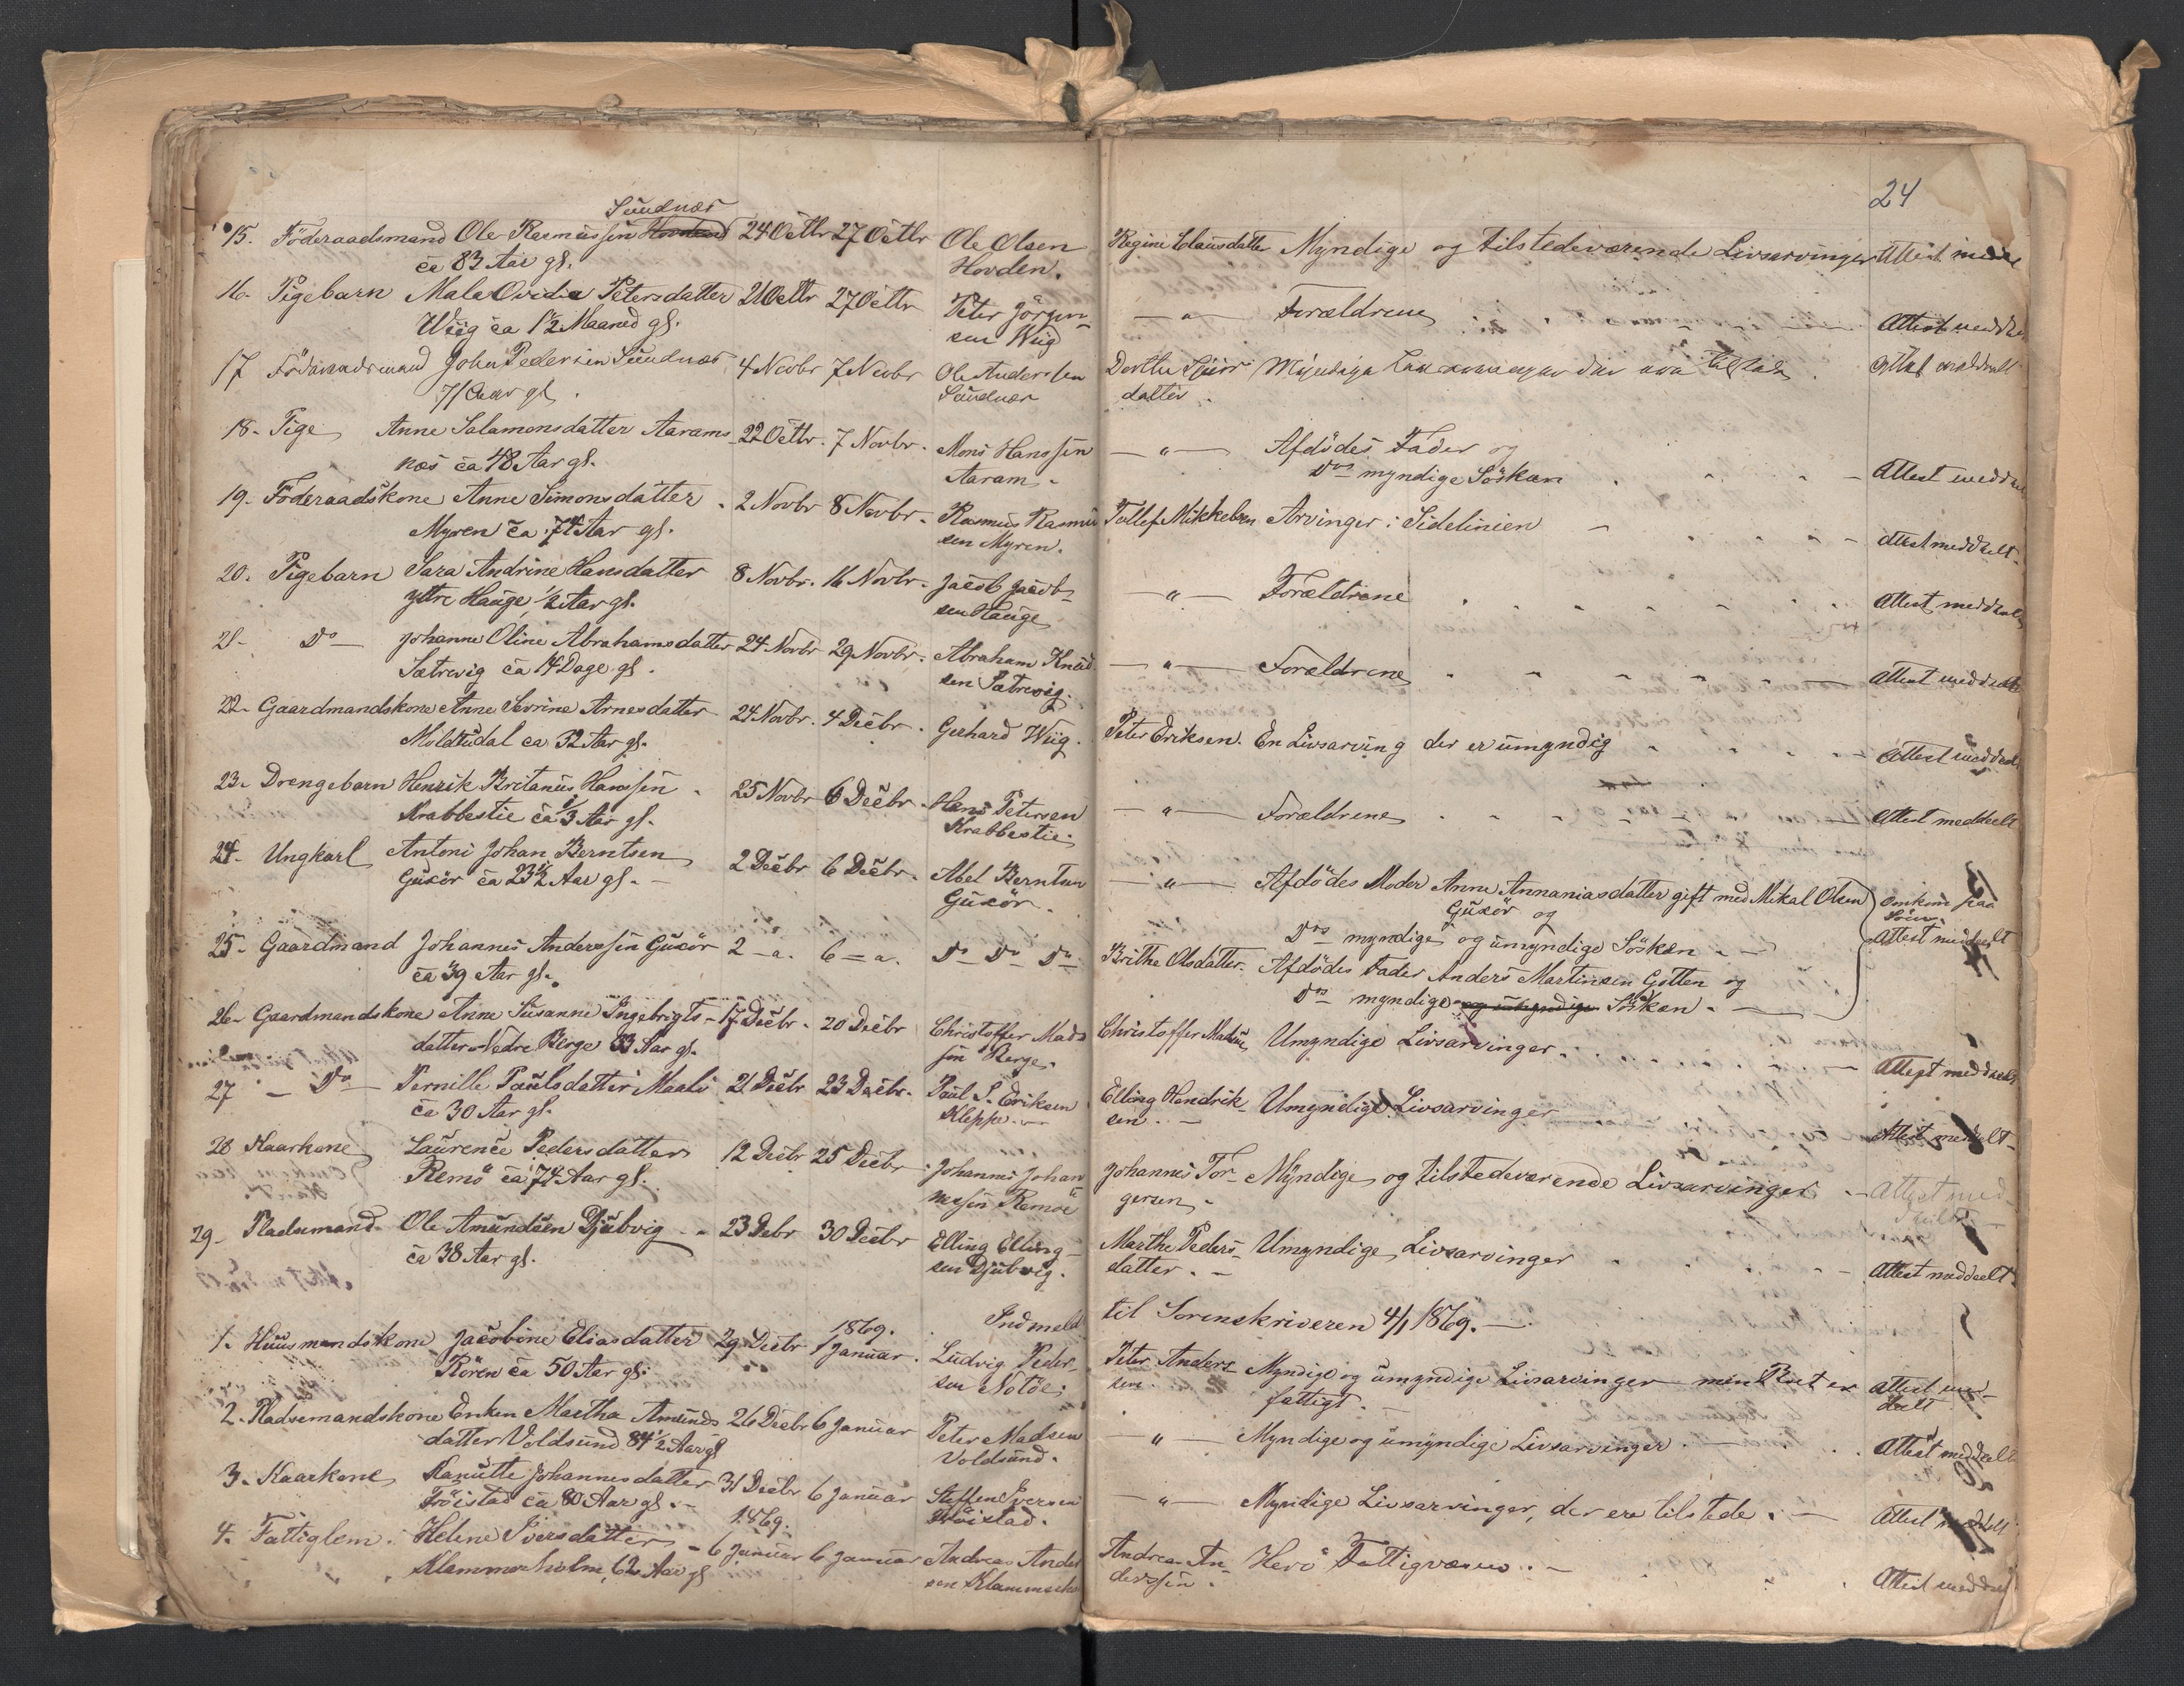 24
Sundnæs
15. Föderaadsmand Ole Rasmussen Hovden 24 Octbr 27 Octbr Ole Olsen Regine Clausdatter Myndige og tilstedeværende Livsarvinger Attest
ca 83 Aar gl. Hovden.
16. Pigebarn Male Ovidia Petersdatter 21 Octbr 27 Octbr Peter Jörgen- — " — Forældrene Attest
Wiig ca 1 1/2 Maaned gl. sen Wiig
17 John Pedersen Sundnæs 4 Novbr 7 Novbr Ole Andersen Dorthe Myndige der ere tilstede. Attest meddeelt
71 Aar gl. Sundnæs datter.
18. Pige Anne Salamonsdatter Aarams- 22 Octbr. 7 Novbr. Mons Hanssen — " — Afdödes Fader og
næs ca 48 Aar gl. Aaram. Dos myndige Söskøn Attest
19. Föderaadskone Anne Simonsdatter 2 Novbr 8 Novbr. Rasmus Rasmus Tollef Mikkelsen Arvinger i Sidelinien Attest meddeelt.
Myren ca 74 Aar gl. sen Myren.
20. Pigebarn Sara Andrine Hansdatter 8 Novbr. 16 Novbr. Jacob Jacob- — " — Forældrene Attest meddeelt
yttre Hauge, 1/2 Aar gl. sen Hauge
21. Do — Johanne Oline Abrahamsdatter 24 Novbr 29 Novbr. Abraham Knud — " — Forældrene Attest meddeelt
Sætrevig ca 14 Dage gl. sen Sætrevig.
22. Gaardmandskone Anne Sevrine Arnesdatter 24 Novbr. 4 Decbr. Gerhard Wiig. Peter Eriksen. En Livsarving der er umyndig Attest meddeelt
Moldtudal ca 32 Aar gl.
23. Drengebarn Henrik Britanus Hanssen 25 Novbr 6 Decbr. Hans Petersen — " — Forældrene Attest meddeelt
Krabbestie ca 1/3 Aar gl. Krabbestie.
24. Ungkarl Antoni Johan Berntsen 2 Decbr 6 Decbr. Abel Berntsen — " — Afdödes Moder Anne Annaniasdatter gift med Mikal Olsen omkom paa
Guxör ca 23 1/2 Aar gl. Guxör. Guxör og Söen.
Dos myndige og umyndige Söskøn. Attest meddeelt
25. Gaardmand Johannes Anderssen Guxör 2 — a. 6 = a. Do Do Do Brithe Olsdatter. Afdödes Fader Anders Martinsen Gjerde og
ca 39 Aar gl. Dos myndige og umyndige Söskøn.
26. Gaardmandskone Anne Susanne Ingebrigts- 17 Decbr. 20 Decbr Christoffer Mad- Christoffer Madsen Umyndige Livsarvinger. Attest meddeelt
datter Nedre Berge 33 Aar gl. sen Berge.
27 — Do — Pernille Paulsdatter Maalö 21 Decbr 23 Decbr. Paul S. Eriksen Elling Hendrik- Umyndige Livsarvinger Attest meddeelt
ca 30 Aar gl. Kleppe. sen.
28 Kaarkone Laurence Pedersdatter 12 Decbr 25 Decbr. Johannes Johan Johannes Tor- Myndige og tilstedeværende Livsarvinger Attest med-
Remö ca 74 Aar gl. nessen Remöe gersen. deelt
29. Pladsmand Ole Amundsen Djubvig 23 Debr 30 Decbr Elling Elling- Marthe Peders- Umyndige Livsarvinger Attest meddeelt.
ca 38 Aar gl. sen Djubvig. datter.
1869. Indmeld til Sorenskriveren 4/1 1869.
1. Huusmandskone Jacobine Eliasdatter 29 Decbr 1 Januar. Ludvig Peder- Peter Anders- Myndige og umyndige Livsarvinger men Boet er Attest med-
Rören ca 50 Aar gl. sen Notöe. sen. fattigt. deelt
2. Pladsemandskone Enken Martha Amunds 26 Decbr 6 Januar Peter Madsen — " — Myndige og umyndige Livsarvinger. Attest meddeelt
datter Voldsund 84 1/2 Aar gl Voldsund.
3. Kaarkone Kanutte Johannesdatter 31 Decbr 6 Januar Steffen Iversen — " — Myndige Livsarvinger, der ere tilstede. Attest meddelt
Fröistad ca 80 Aar gl. Fröistad.
1869.
4. Fattiglem. Helene Iversdatter 6 Januar 6 Januar Andreas Ander Andreas An- Herö Fattigvæsen. Attest meddeelt
Klammerholm, 62 Aar gl sen derssen.